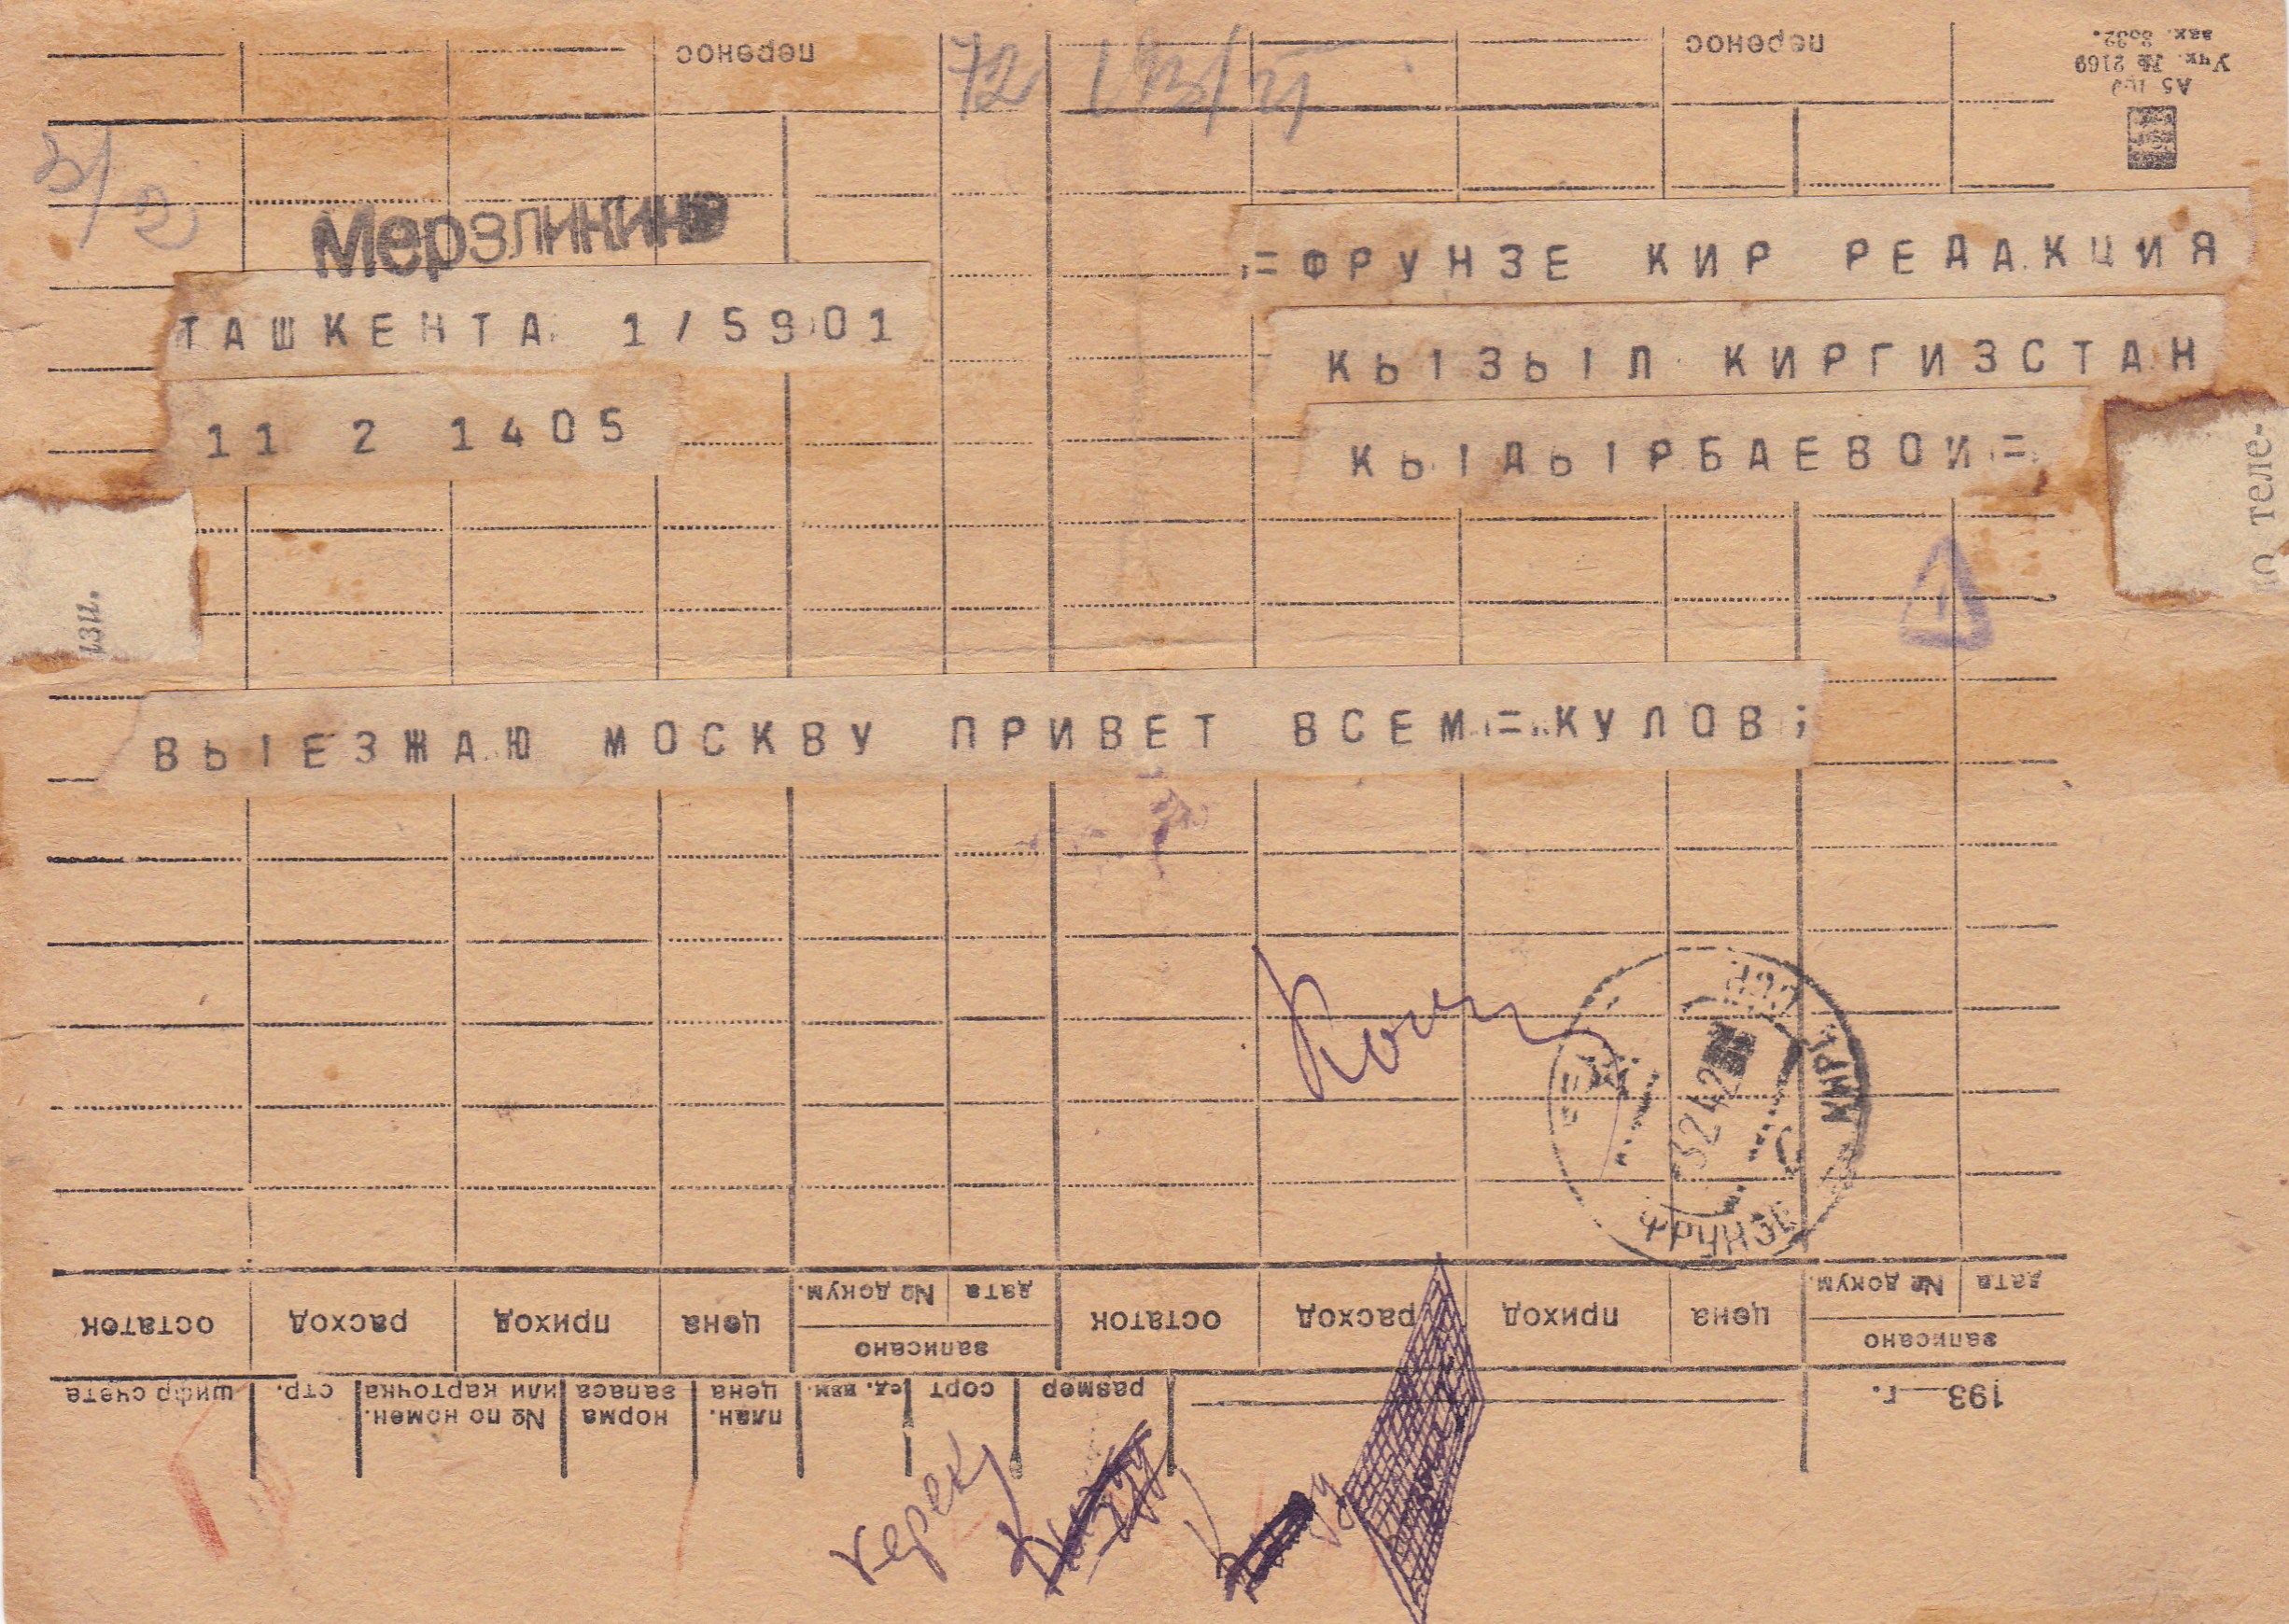 перенос
перенос
Учк. № 2169
зак. 8632.
72
Мерзликин
=ФРУНЗЕ КИР РЕДАКЦИЯ
ТАШКЕНТА 1/5901
КЫЗЫЛ КИРГИЗСТАН
11 2 1405
КЫДЫРБАЕВОИ=
ю теле-
изи.
1
ВЫЕЗЖАЮ МОСКВУ ПРИВЕТ ВСЕМ=КУЛОВ;
ФРУНЗЕ КИРГ ССР
остаток расход приход цена № докум. дата остаток расход приход цена № докум. дата
записано записано
шифр счета стр. № по номен. или карточка норма запаса план. цена ед. изм. сорт размер 193 г.
керек